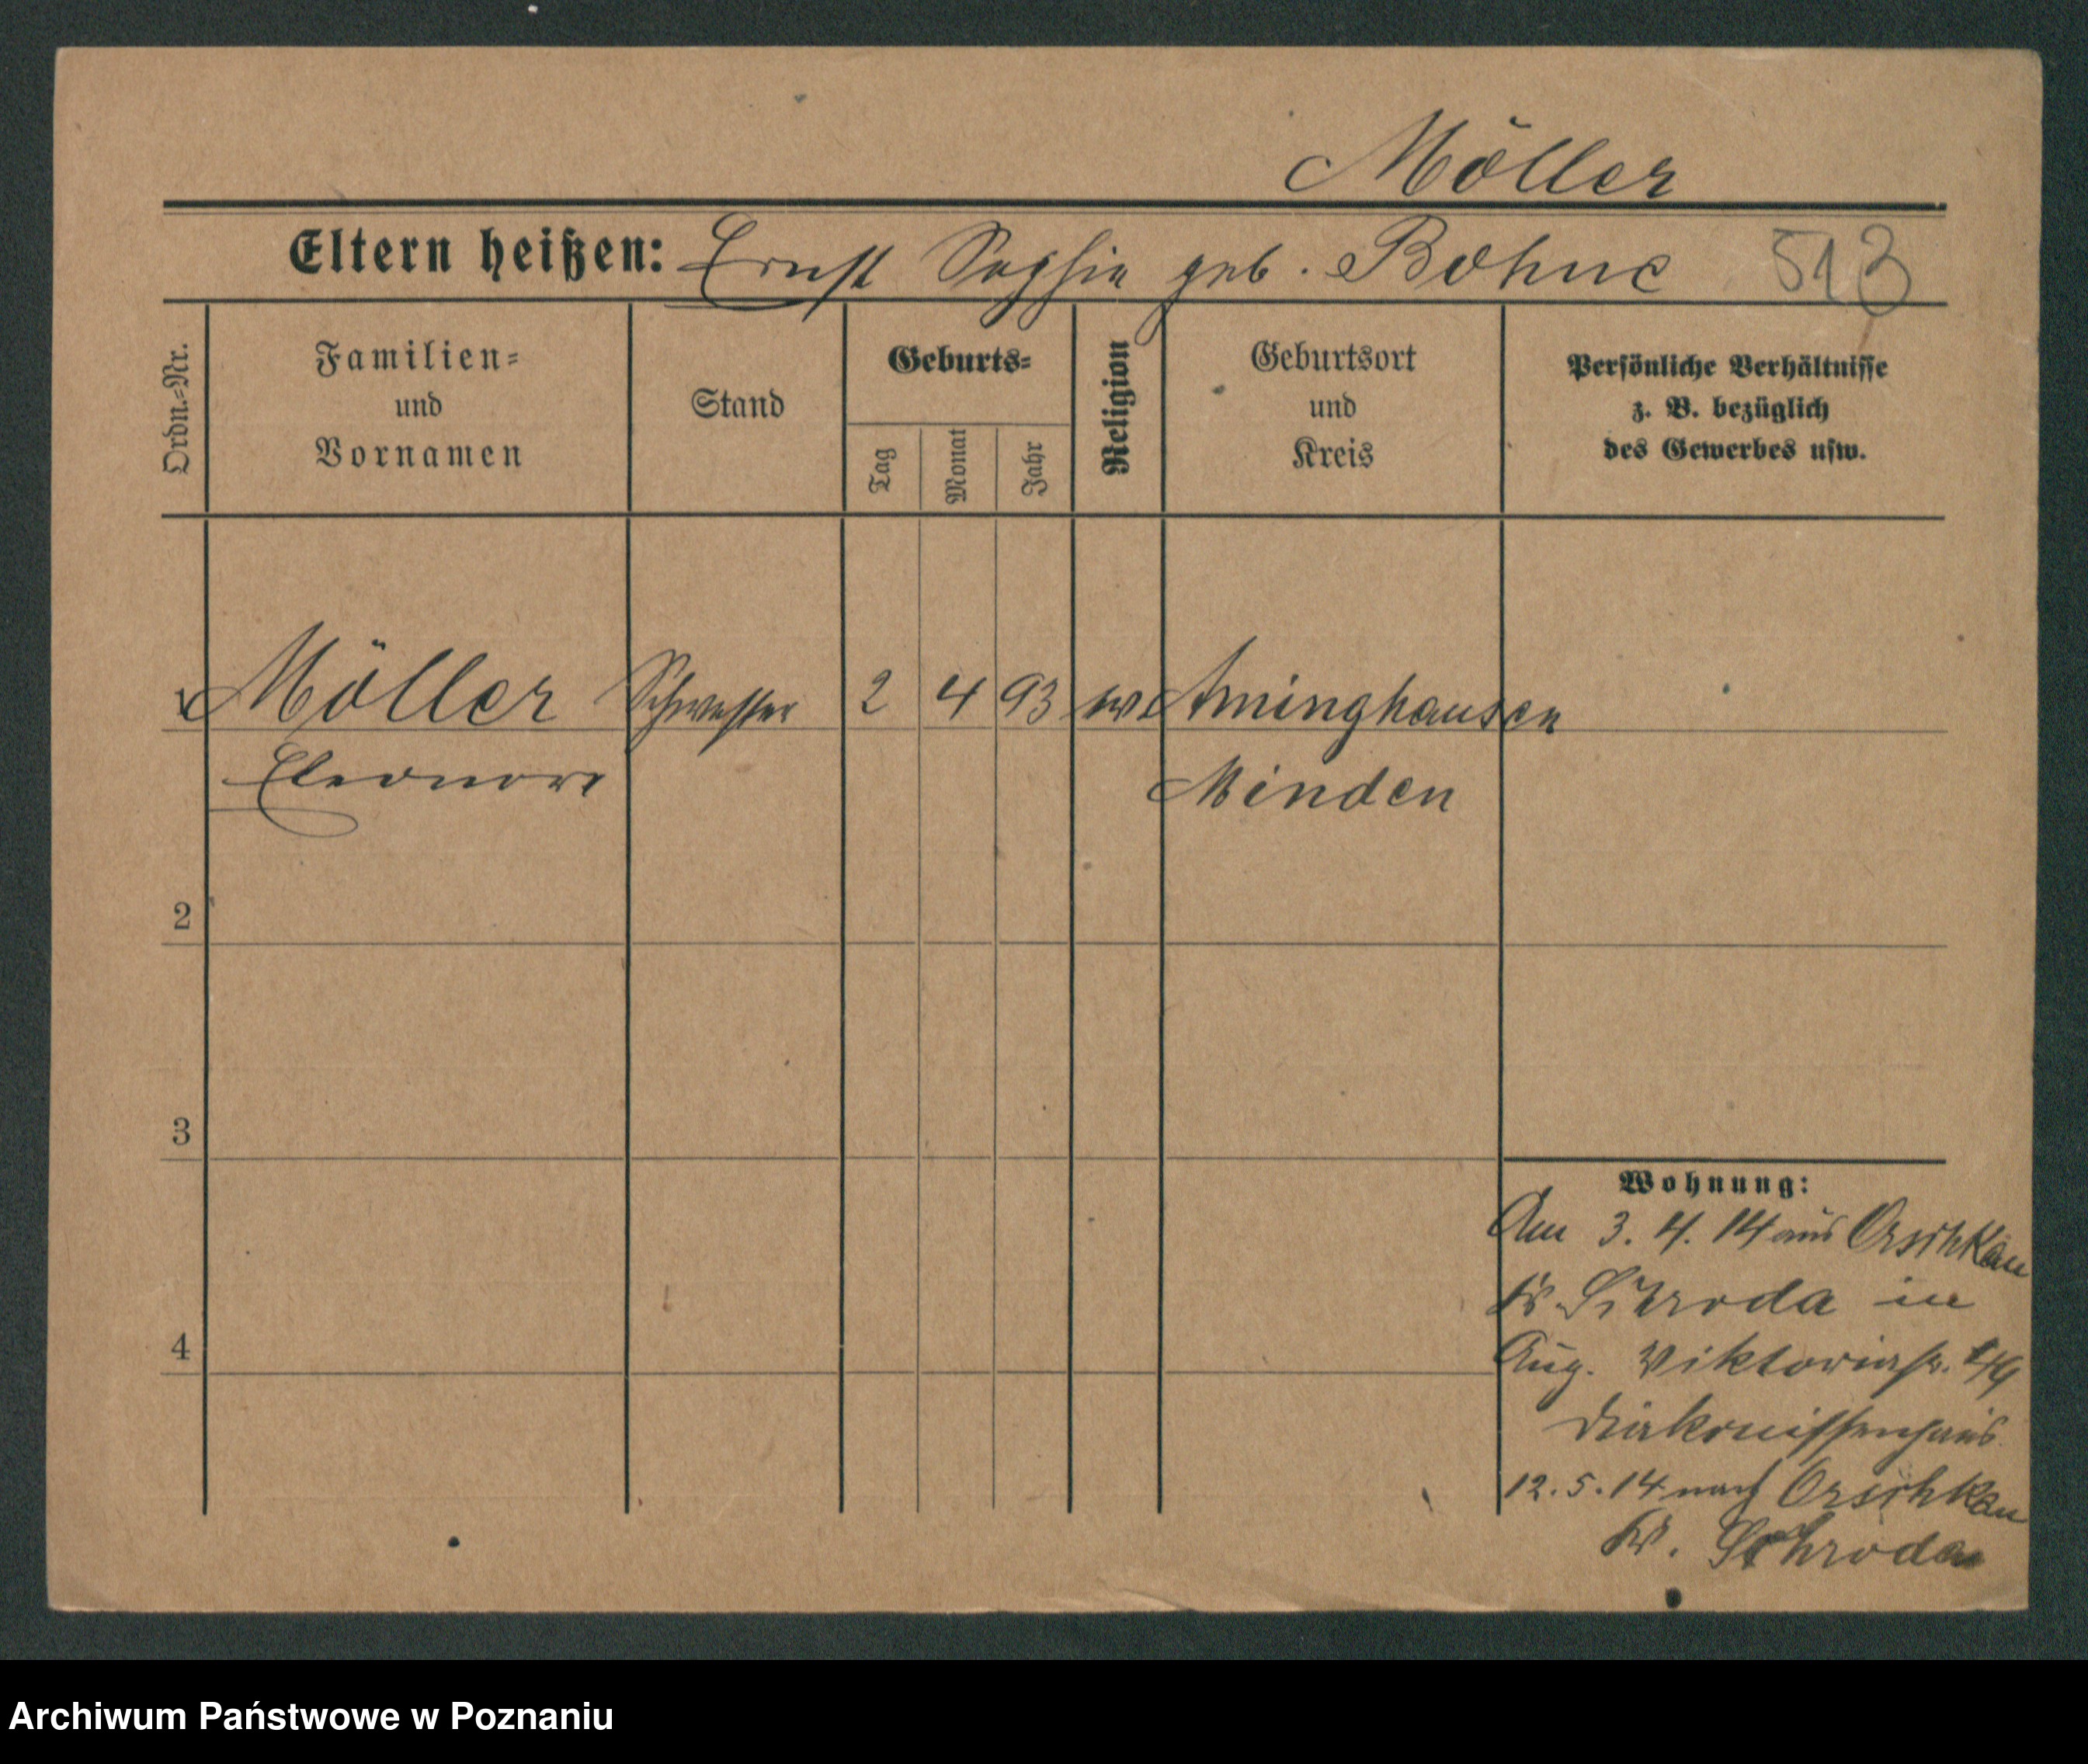 Möller
Eltern heißen: Ernst Sophie geb. Bohne 513
Ordn.-Nr.
Familien-
und
Vornamen
Stand
Geburts-
Tag
Monat
Jahr
Religion
Geburtsort
und
Kreis
Persönliche Verhältnisse
z. B. bezüglich
des Gewerbes usw.
1 Möller Schwester 2 4 93 Aminghausen
Eleonore Minden
2
3
4
Wohnung:
Am 3. 4. 14 aus Orschkau
Kr. Schroda in
Aug. Viktoriastr.
Diakonissenhaus
12. 5. 14 nach Orschkau
Kr. Schroda
Archiwum Państwowe w Poznaniu